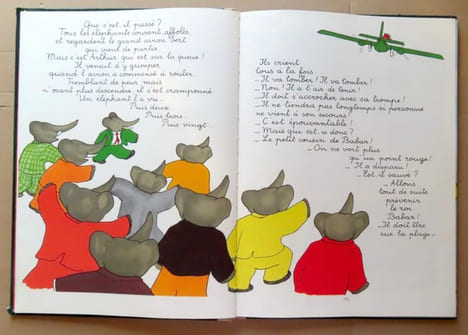 Que s'est il passé?
Tous les éléphants courent, affolés,
et regardent le grand avion vert
qui vient de partir.
Mais c'est Arthur qui est sur la queue!
Il venait d'y grimper
quand l'avion a commencé à rouler.
Tremblant de peur, mais
n'osant plus descendre, il s'est cramponné.
Un éléphant l'a vu...
Puis deux...
Puis trois...
Puis vingt...
Ils crient
tous à la fois:
_ Il va tomber! Il va tomber!
_ Non! Il a l'air de tenir!
_ Il doit s'accrocher avec sa trompe!
_ Il ne tiendra pas longtemps si personne
ne vient à son secours!
_ C'est épouvantable!
_ Mais qui est-ce donc?
_ Le petit cousin de Babar!
_ On ne voit plus
qu'un point rouge!
_ Il a disparu!
_ Est-il sauvé?
_ Allons
tout de suite
prévenir
le roi
Babar!
_ Il doit être
sur la plage.